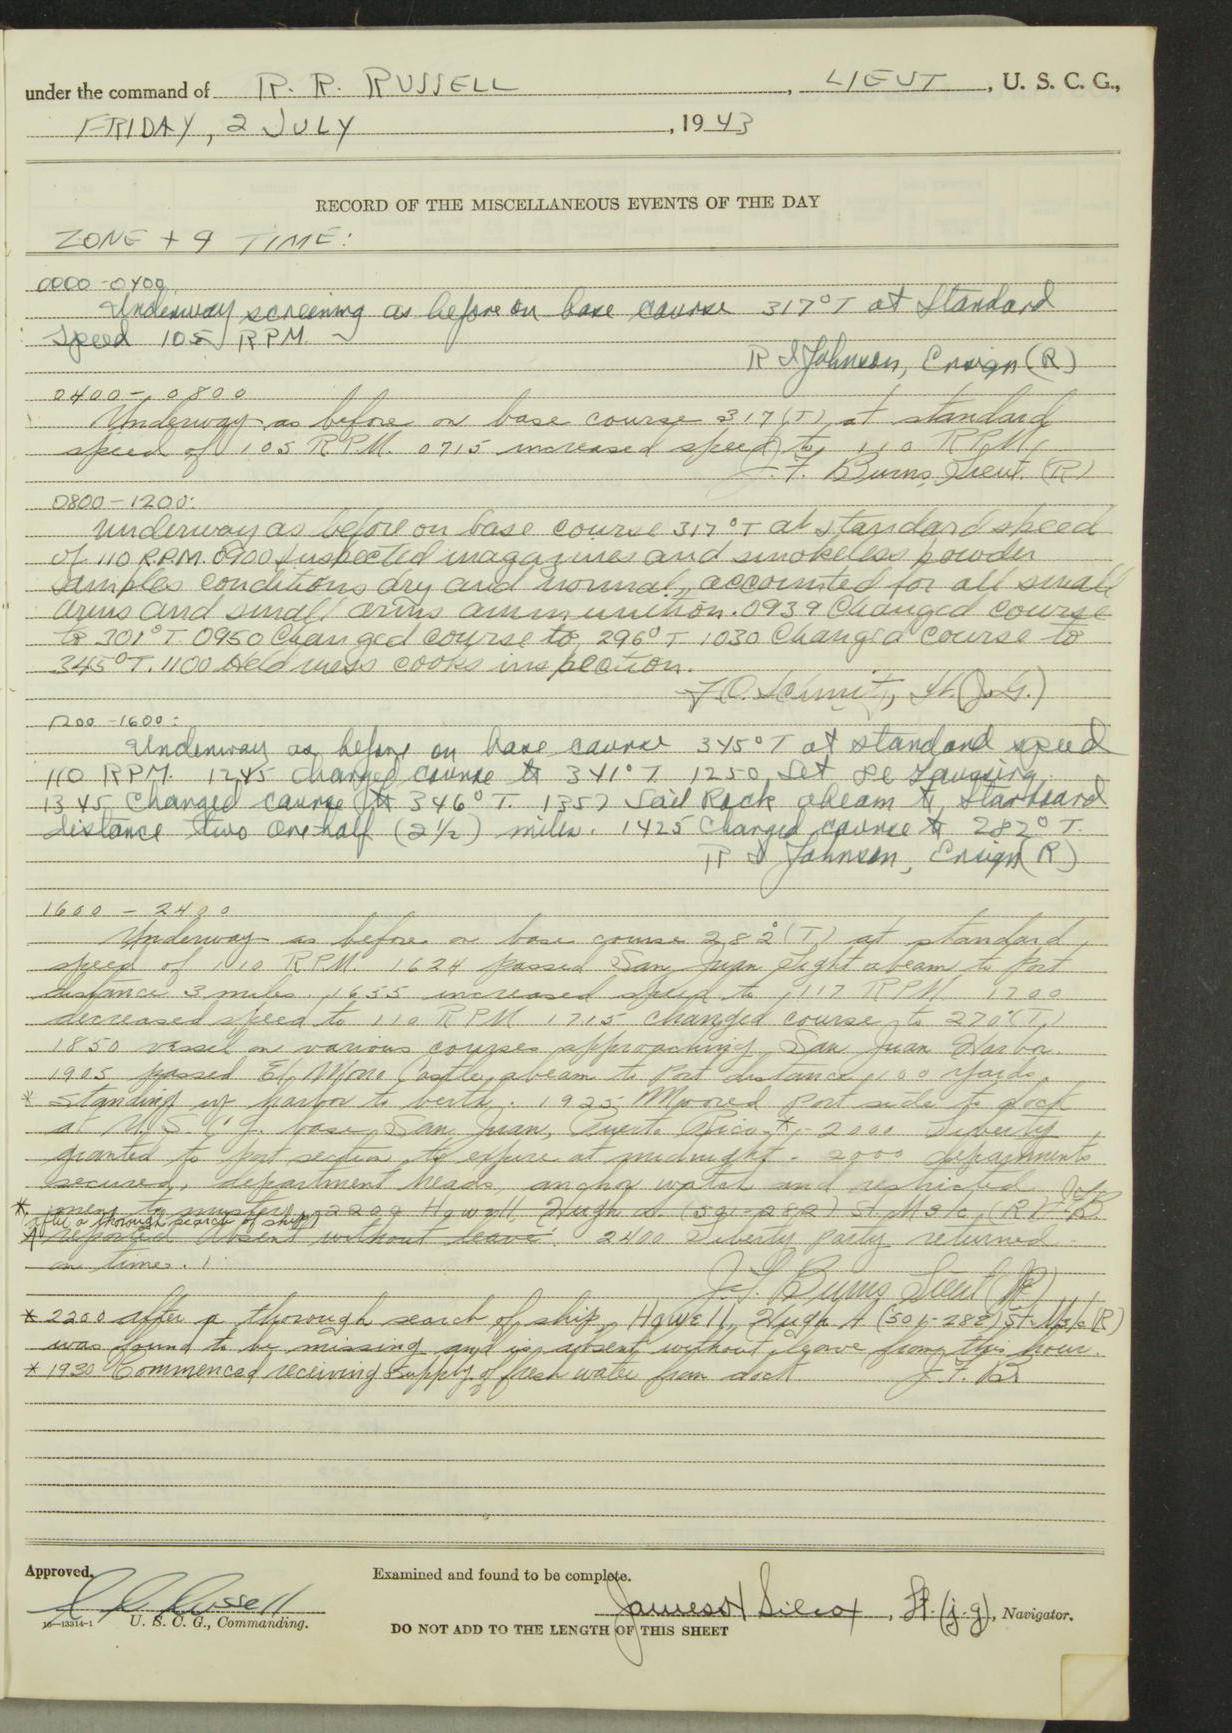 under the command of R. R. RUSSELL, LIEUT, U. S. C. G.,
FRIDAY, 2 JULY, 1943
RECORD OF THE MISCELLANEOUS EVENTS OF THE DAY
ZONE + 4 TIME:
0000-0400
Underway screening as before on base course 317°T at Standard
Speed 105 RPM.
R Johnson, Ensign (R)
0400-0800
Underway as before on base course 317(T) at standard
speed of 105 RPM. 0715 increased speed to 110 RPM.
J. F. Burns, Lieut. (R)
0800-1200:
Underway as before on base course 317°T at standard speed
of 110 R.P.M. 0900 Inspected magazines and smokeless powder
samples conditions dry and normal, accounted for all small
arms and small arms ammunition. 0939 Changed course
to 301°T. 0950 Changed course to 296°T 1030 Changed course to
345°T. 1100 Held mess cooks inspection.
F.O. Schmit, Lt. (J.G.)
1200-1600:
Underway as before on base course 345°T at standard speed
110 RPM. 1245 Changed course to 341°T. 1250 Set
1345 Changed course to 346°T. 1357 Sail Rock abeam to Starboard
distance two one half (2½) miles. 1425 Changed course to 282°T.
R Johnson, Ensign (R)
1600 - 2400
Underway as before on base course 282°(T) at standard
speed of 110 RPM. 1624 passed San Juan Light abeam to Port
distance 3 miles. 1655 increased speed to 117 RPM 1700
decreased speed to 110 RPM 1715 changed course to 270°(T)
1850 vessel on various courses approaching San Juan Harbor.
1905 passed El Morro Castle abeam to Port distance 100 yards,
* standing up harbor to berth. 1925 Moored Port side to dock
at U.S.C.G. base, San Juan, Puerto Rico.*- 2000 Liberty
granted to port section to expire at midnight. 2000 departments
secured, department heads, anchor watch and restricted
* men to muster. 2200 Howell, Hugh A. (501-282) St.M3/c, (R)
after a thorough search of ship)
reported absent without leave. 2400 Liberty party returned
on time.
J.F. Burns Lieut (R)
* 2200 after a thorough search of ship, Howell, Hugh A (501-282) St.M3/c(R)
was found to be missing and is absent without leave from this hour.
* 1930 Commenced receiving supply of fresh water from dock. J.F.B
Approved.
R R Russell
16-13314-1 U. S. C. G., Commanding.
Examined and found to be complete.
James H Silcox, Lt. (j.g), Navigator.
DO NOT ADD TO THE LENGTH OF THIS SHEET